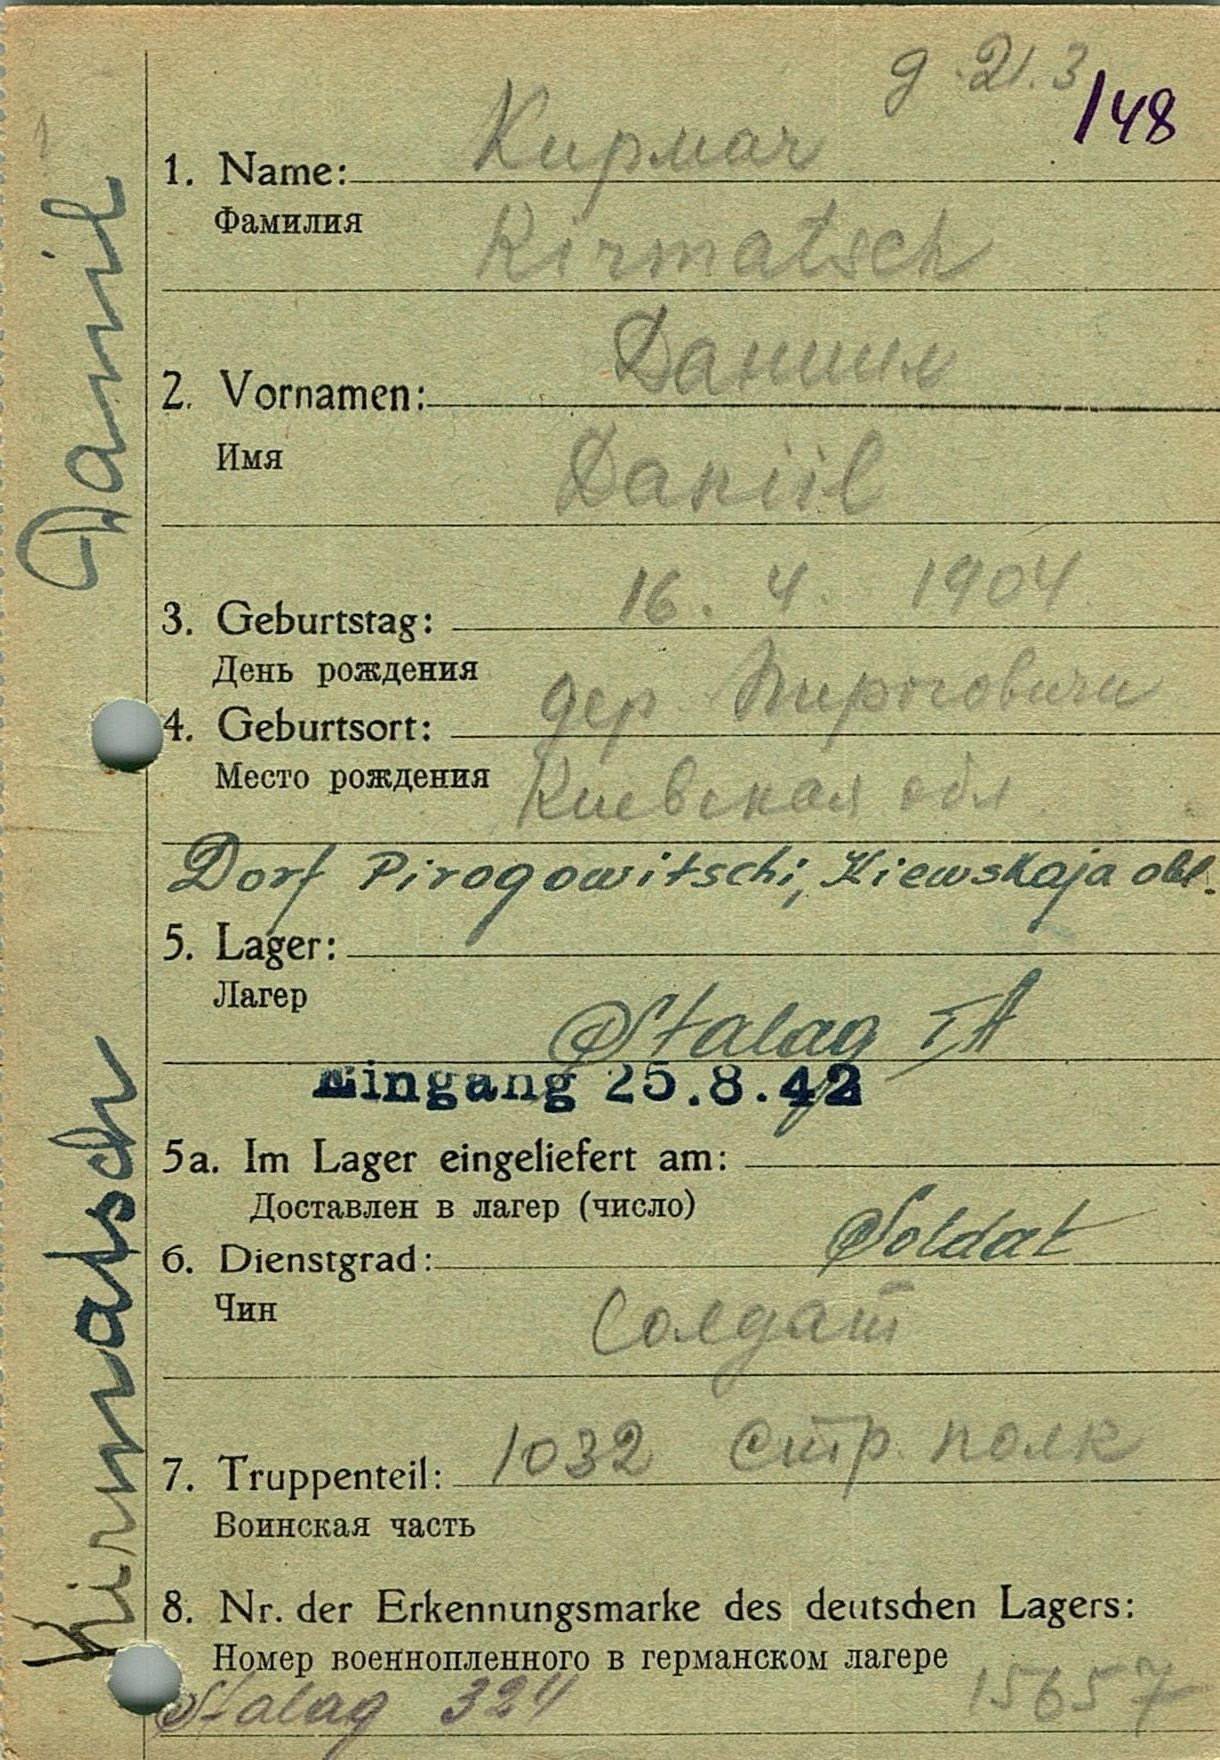 д. 21.3
/48
Кирмач
1. Name:
Фамилия
Kirmatsch
Даниил
2. Vornamen:
Имя
Daniil
3. Geburtstag: 16. 4. 1904
День рождения
дер Пироговичи
4. Geburtsort:
Место рождения
Киевская обл
Dorf Pirogowitschi, Kiewskaja obl.
5. Lager:
Лагер
Stalag IA
Eingang 25.8.42
5a. Im Lager eingeliefert am:
Доставлен в лагер (число)
6. Dienstgrad: Soldat
Чин
Солдат
7. Truppenteil: 1032 стр. полк
Воинская часть
8. Nr. der Erkennungsmarke des deutschen Lagers:
Номер военнопленного в германском лагере
Stalag 324 15657
Kirmatsch Daniil